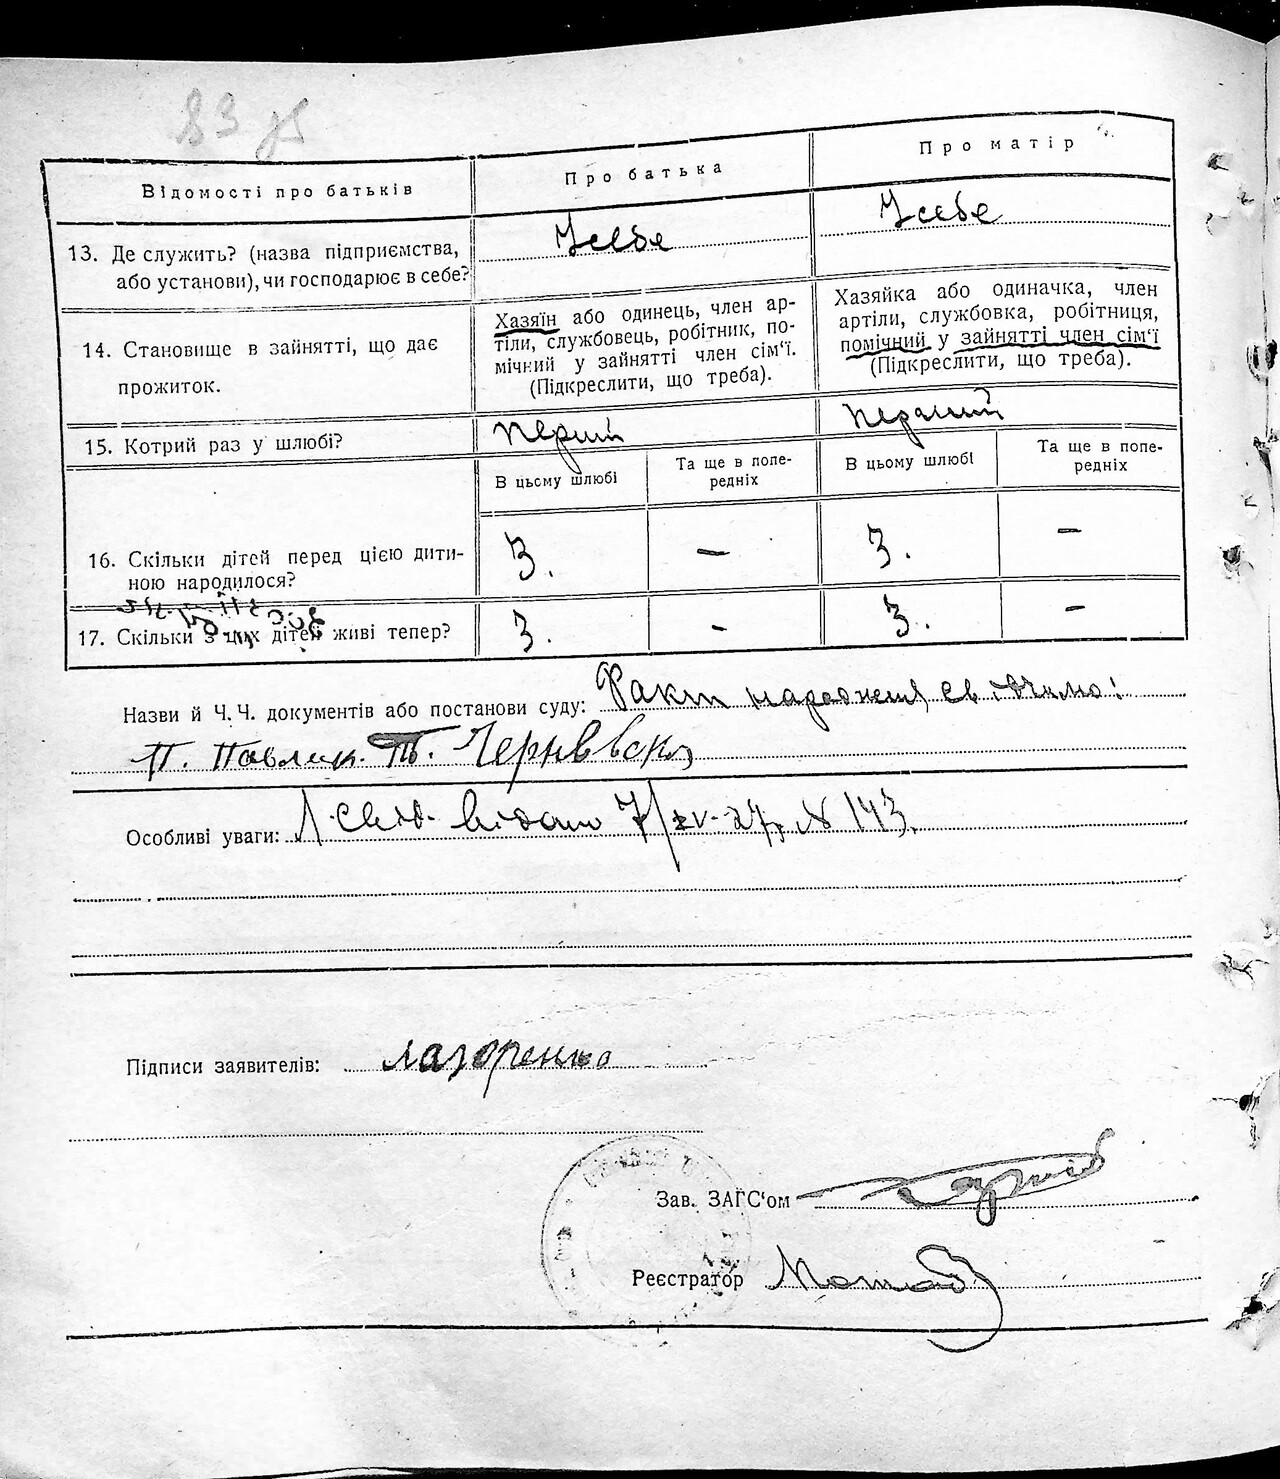 83 зв
Відомості про батьків
Про батька
Про матір
13. Де служить? (назва підприємства, або установи), чи господарює в себе?
У себе
У себе
14. Становище в зайнятті, що дає прожиток.
Хазяїн або одинець, член ар-
тіли, службовець, робітник, по-
мічний у зайнятті член сім'ї.
(Підкреслити, що треба).
Хазяйка або одиначка, член
артіли, службовка, робітниця,
помічний у зайнятті член сім'ї
(Підкреслити, що треба).
15. Котрий раз у шлюбі?
перший
перший
В цьому шлюбі
Та ще в попе-
редніх
В цьому шлюбі
Та ще в попе-
редніх
16. Скільки дітей перед цією дити-
ною народилося?
3.
–
3.
–
17. Скільки з цих дітей живі тепер?
3.
–
3.
–
Назви й Ч. Ч. документів або постанови суду: Факт народження свідчимо:
П. Павлик. Т.
Особливі уваги: Свід. видано 7/IV-27р № 143.
Підписи заявителів: Лазоренко
Зав. ЗАГС'ом
Реєстратор